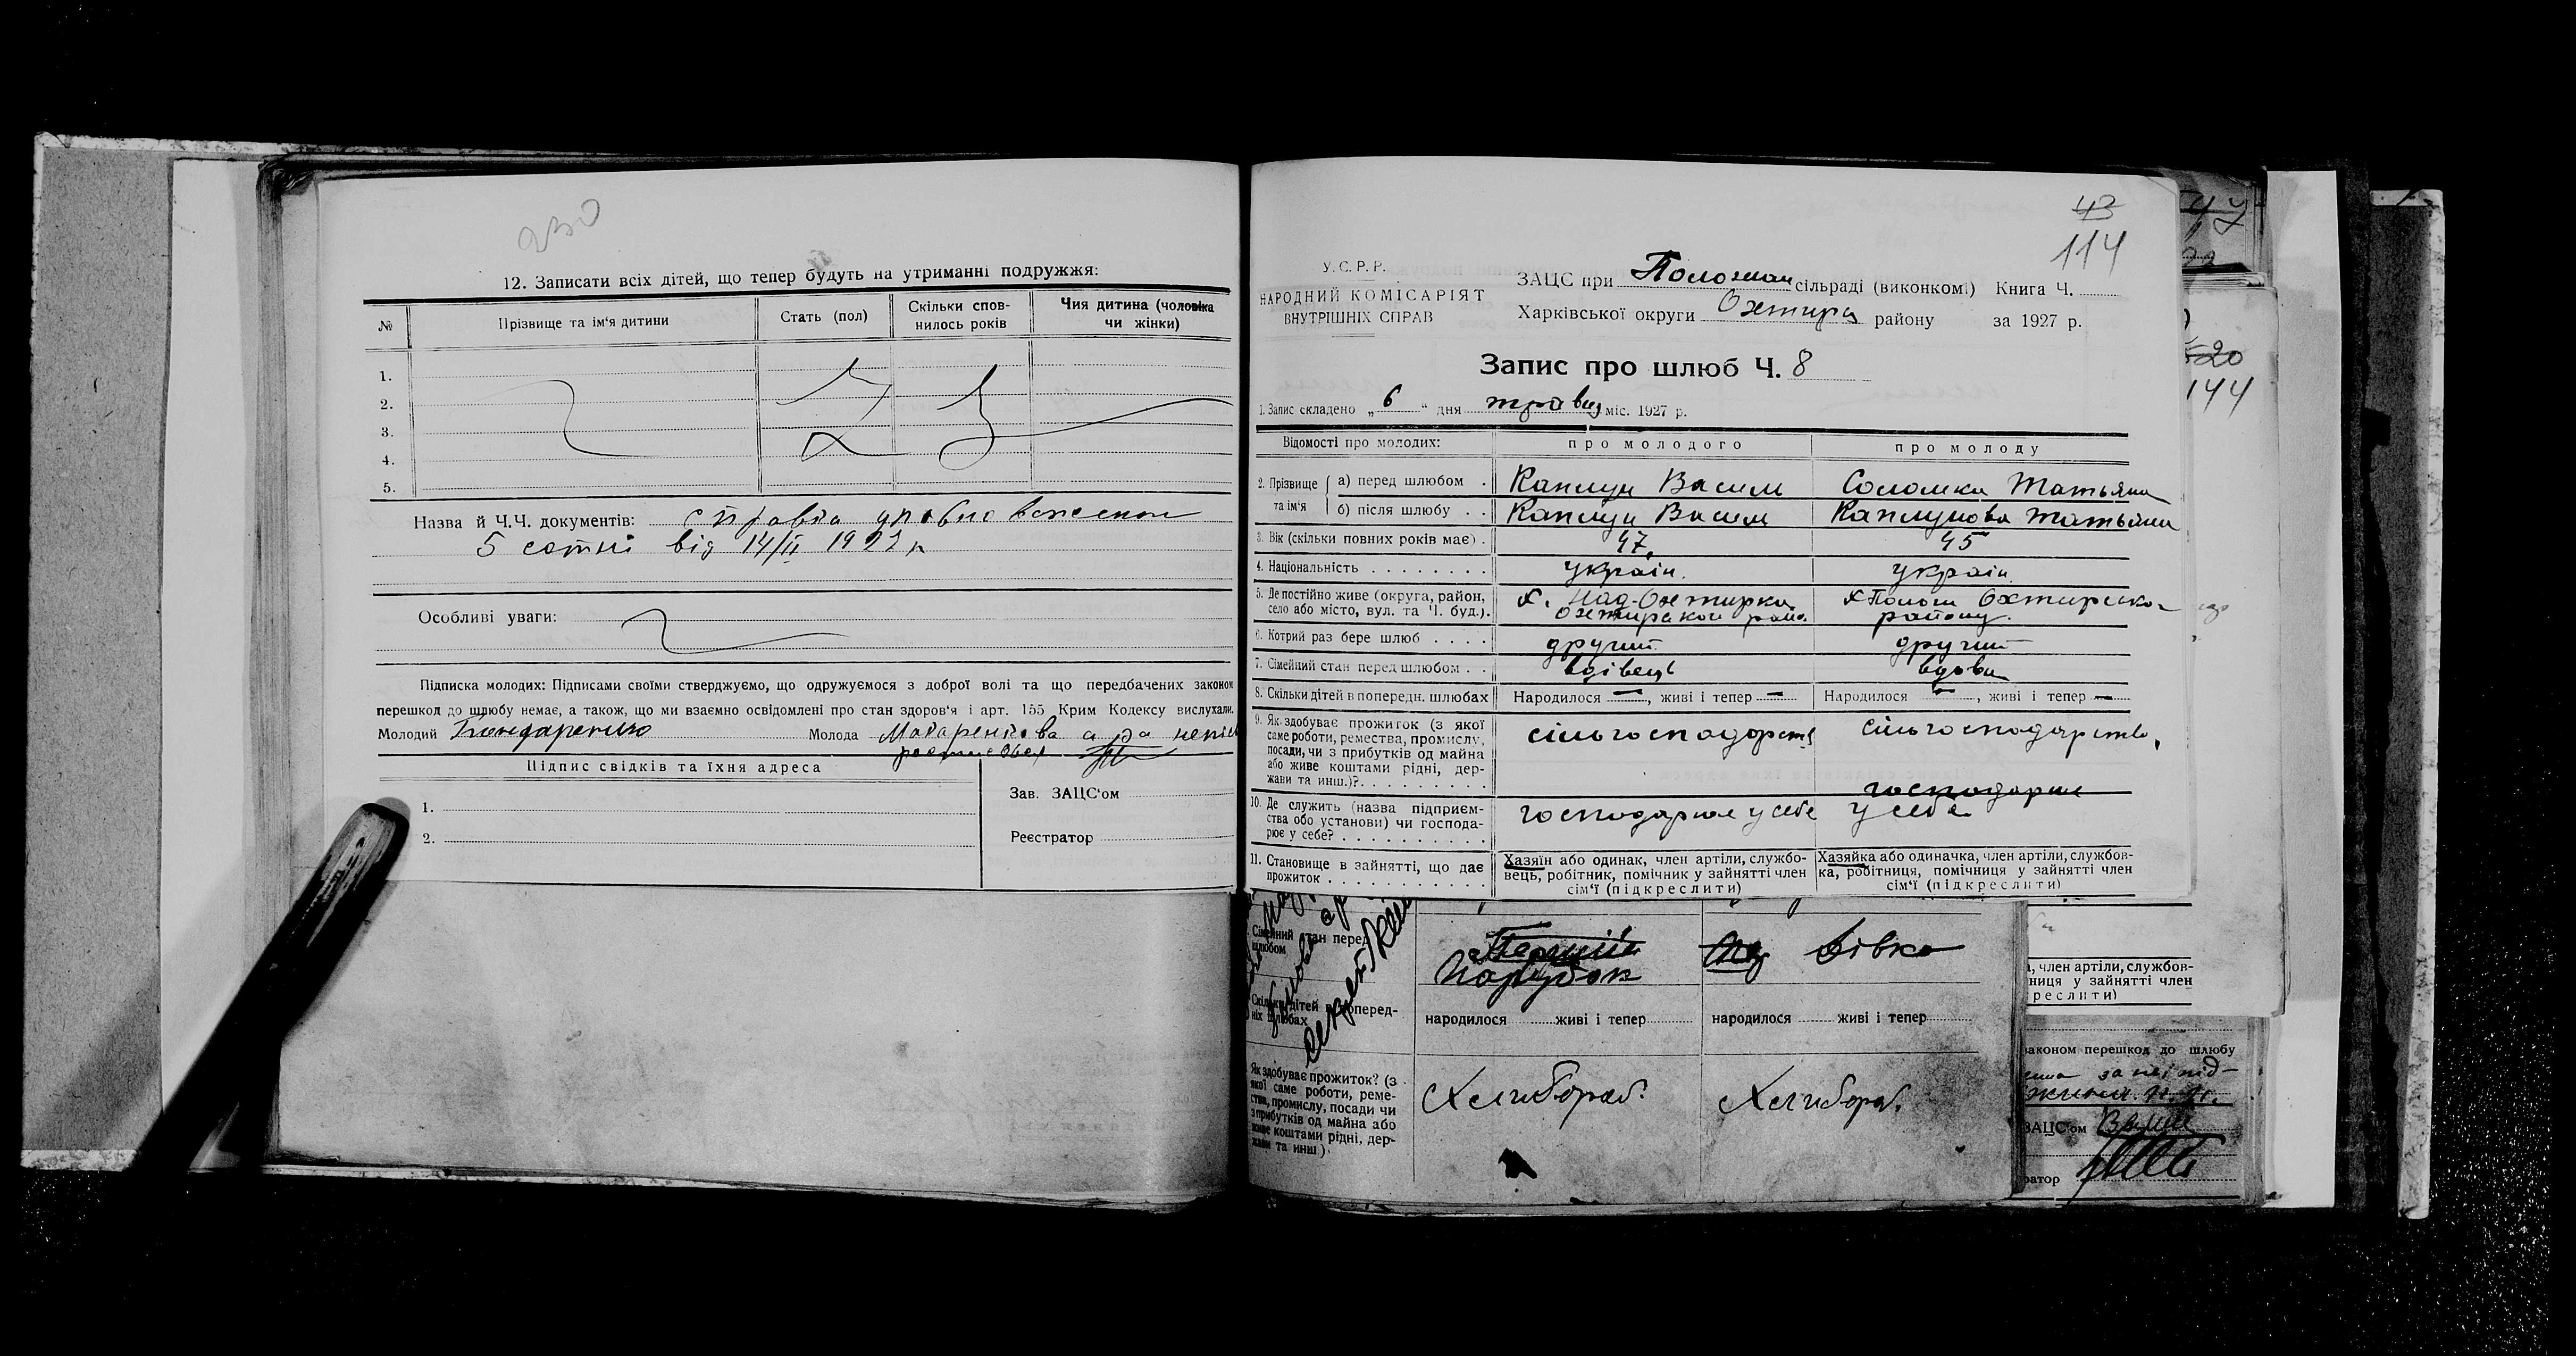 12. Записати всіх дітей, що тепер будуть на утриманні подружжя:
№ Прізвище та ім'я дитини Стать (пол) Скільки сповнилось років Чия дитина (чоловіка чи жінки)
1.
2.
3.
4.
5.
Назва й Ч.Ч. документів: справка
5 сотні від 14/II 1927 р
Особливі уваги:
Підписка молодих: Підписами своїми стверджуємо, що одружуємося з доброї волі та що передбачених законом
перешкод до шлюбу немає, а також, що ми взаємно освідомлені про стан здоров'я і арт. 155 Крим Кодексу вислухали.
Молодий Бондаренко Молода
Підпис свідків та їхня адреса
1.
2.
Зав. ЗАЦС'ом
Реєстратор
43
114
У. С. Р. Р.
НАРОДНИЙ КОМІСАРІЯТ
ВНУТРІШНІХ СПРАВ
ЗАЦС при сільраді (виконкомі) Книга Ч.
Харківської округи Охтирц району за 1927 р.
Запис про шлюб Ч. 8
1. Запис складено „6“ дня травня міс. 1927 р.
Відомості про молодих: про молодого про молоду
2. Прізвище та ім'я а) перед шлюбом Каплун Васил Соломка Татьяна
б) після шлюбу Каплун Васил Каплунова Татьяна
3. Вік (скільки повних років має) 47 45
4. Національність україн. україн.
5. Де постійно живе (округа, район, х. Над-Охтирка х Пологи Охтирсько
село або місто, вул. та Ч. буд.). Охтирськой район району.
6. Котрий раз бере шлюб другий другий
7. Сімейний стан перед шлюбом вдівець вдова
8. Скільки дітей в попередн. шлюбах Народилося —, живі і тепер — Народилося —, живі і тепер —
9. Як здобуває прожиток (з якої
саме роботи, ремества, промислу, сільгосподарств сільгосподарство,
посади, чи з прибутків од майна
або живе коштами рідні, дер-
жави та инш.)?
10. Де служить (назва підприєм- господарює
ства або установи) чи господа- господарює у себе у себе
рює у себе?
11. Становище в зайнятті, що дає прожиток
Хазяїн або одинак, член артілі, службо-
вець, робітник, помічник у зайнятті член
сім'ї (підкреслити)
Хазяйка або одиначка, член артілі, службов-
ка, робітниця, помічниця у зайнятті член
сім'ї (підкреслити)
Сімейний стан перед шлюбом Парубок Дівка
Скільки дітей в попередніх шлюбах народилося живі і тепер народилося живі і тепер
Як здобуває прожиток? (з
якої саме роботи, реме-
ства, промислу, посади чи
з прибутків од майна або
живе коштами рідні, дер-
жави та инш)
Хлибороб. Хлибороб.
20
144
, член артілі, службов-
ниця у зайнятті член
реслити)
законом перешкод до шлюбу
ЗАЦС'ом
ратор